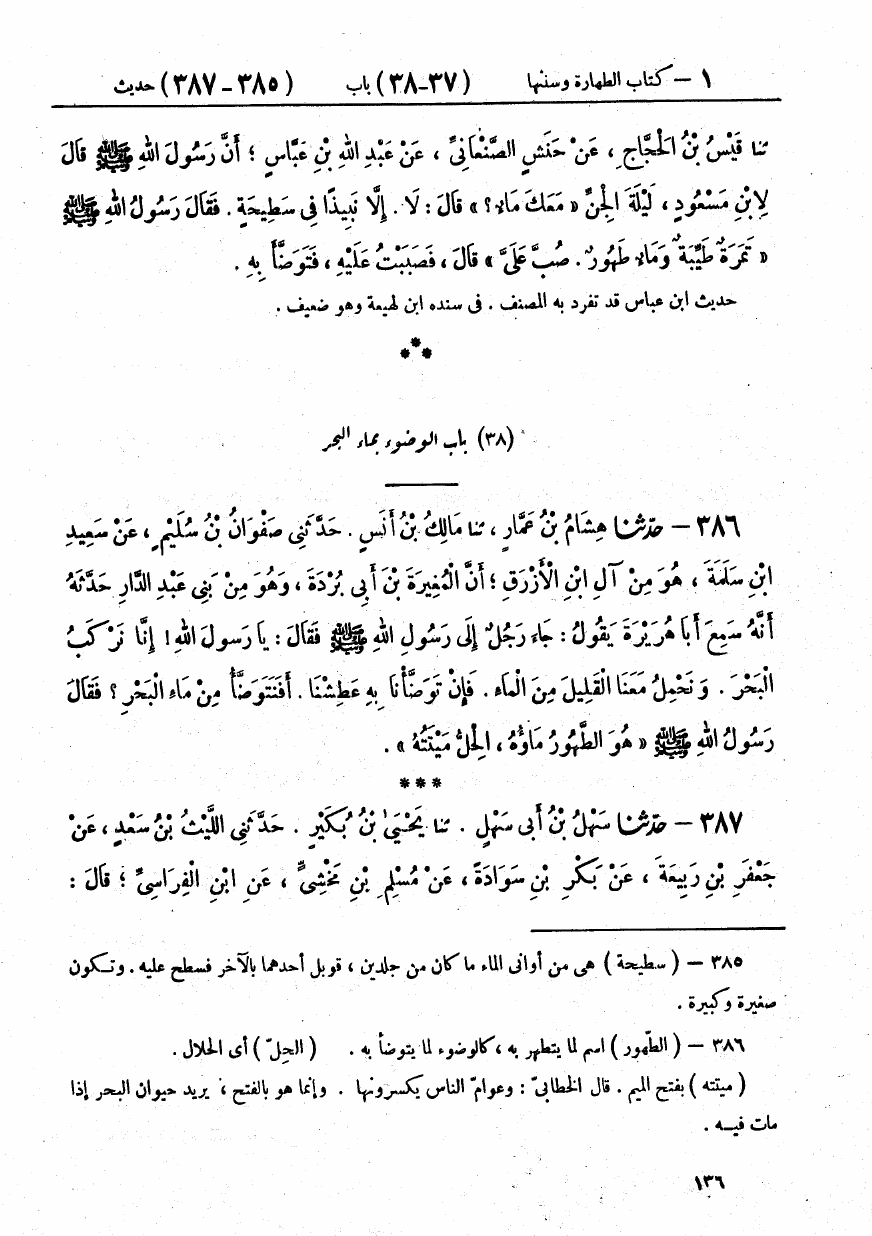 ١ — كتاب الطهارة وسننها (٣٧-٣٨) باب (٣٨٥ - ٣٨٧) حديث
ثنا قَيْسُ بْنُ الْحَجَّاجِ ، عَنْ حَنَشٍ الصَّنْعَانِىِّ ، عَنْ عَبْدِ اللهِ بْنِ عَبَّاسٍ ؛ أَنَّ رَسُولَ اللهِ ﷺ قَالَ
لِابْنِ مَسْعُودٍ ، لَيْلَةَ الْجِنِّ « مَعَكَ مَاءٌ ؟ » قَالَ : لَا . إِلَّا نَبِيذًا فِى سَطِيحَةٍ . فَقَالَ رَسُولُ اللهِ ﷺ
« تَمْرَةٌ طَيِّبَةٌ وَمَاءٌ طَهُورٌ . صُبَّ عَلَىَّ » قَالَ ، فَصَبَبْتُ عَلَيْهِ ، فَتَوَضَّأَ بِهِ .
حديث ابن عباس قد تفرد به المصنف . فى سنده ابن لهيعة وهو ضعيف .
***
(٣٨) باب الوضوء بماء البحر
٣٨٦ — حدّثنا هِشَامُ بْنُ عَمَّارٍ ، ثنا مَالِكُ بْنُ أَنَسٍ . حَدَّثَنِى صَفْوَانُ بْنُ سُلَيْمٍ ، عَنْ سَعِيدِ
ابْنِ سَلَمَةَ ، هُوَ مِنْ آلِ ابْنِ الْأَزْرَقِ ؛ أَنَّ الْمُغِيرَةَ بْنَ أَبِى بُرْدَةَ ، وَهُوَ مِنْ بَنِى عَبْدِ الدَّارِ حَدَّثَهُ
أَنَّهُ سَمِعَ أَبَا هُرَيْرَةَ يَقُولُ : جَاءَ رَجُلٌ إِلَى رَسُولِ اللهِ ﷺ فَقَالَ : يَا رَسُولَ اللهِ ! إِنَّا نَرْكَبُ
الْبَحْرَ . وَنَحْمِلُ مَعَنَا الْقَلِيلَ مِنَ الْمَاءِ . فَإِنْ تَوَضَّأْنَا بِهِ عَطِشْنَا . أَفَنَتَوَضَّأُ مِنْ مَاءِ الْبَحْرِ ؟ فَقَالَ
رَسُولُ اللهِ ﷺ « هُوَ الطَّهُورُ مَاؤُهُ ، الْحِلُّ مَيْتَتُهُ » .
***
٣٨٧ — حدّثنا سَهْلُ بْنُ أَبِى سَهْلٍ . ثنا يَحْيَىٰ بْنُ بُكَيْرٍ . حَدَّثَنِى اللَّيْثُ بْنُ سَعْدٍ ، عَنْ
جَعْفَرِ بْنِ رَبِيعَةَ ، عَنْ بَكْرِ بْنِ سَوَادَةَ ، عَنْ مُسْلِمِ بْنِ مَخْشِىٍّ ، عَنِ ابْنِ الْفِرَاسِىِّ ؛ قَالَ :
٣٨٥ — ( سطيحة ) هى من أوانى الماء ما كان من جلدين ، قوبل أحدهما بالآخر فسطح عليه . وتكون
صغيرة وكبيرة .
٣٨٦ — ( الطّهور ) اسم لما يتطهر به ، كالوضوء لما يتوضأ به . ( الحِلّ ) أى الحلال .
( ميتته ) بفتح الميم . قال الخطابىّ : وعوامّ الناس يكسرونها . وإنما هو بالفتح ، يريد حيوان البحر إذا
مات فيه .
١٣٦